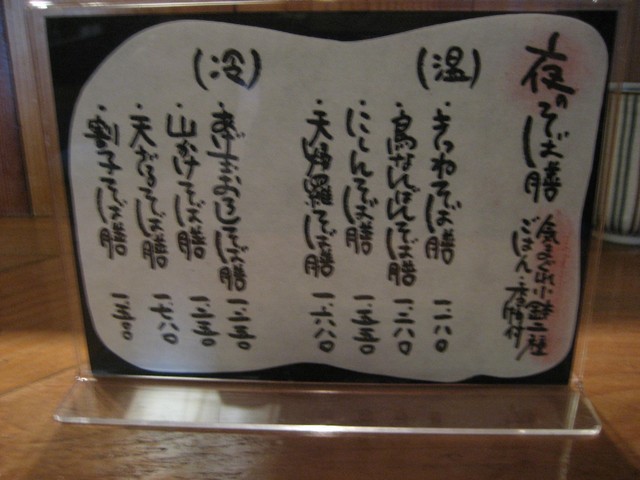 夜のそばお膳
気まぐれ小鉢二種
ごはん・香物付
(温)
・きつねそばお膳 一一八〇
・鳥なんばんそばお膳 一三八〇
・にしんそばお膳 一五五〇
・天婦羅そばお膳 一六八〇
(冷)
・あげおろしそばお膳 一三五〇
・山かけそばお膳 一三五〇
・天ざるそばお膳 一七八〇
・割子そばお膳 一五〇〇